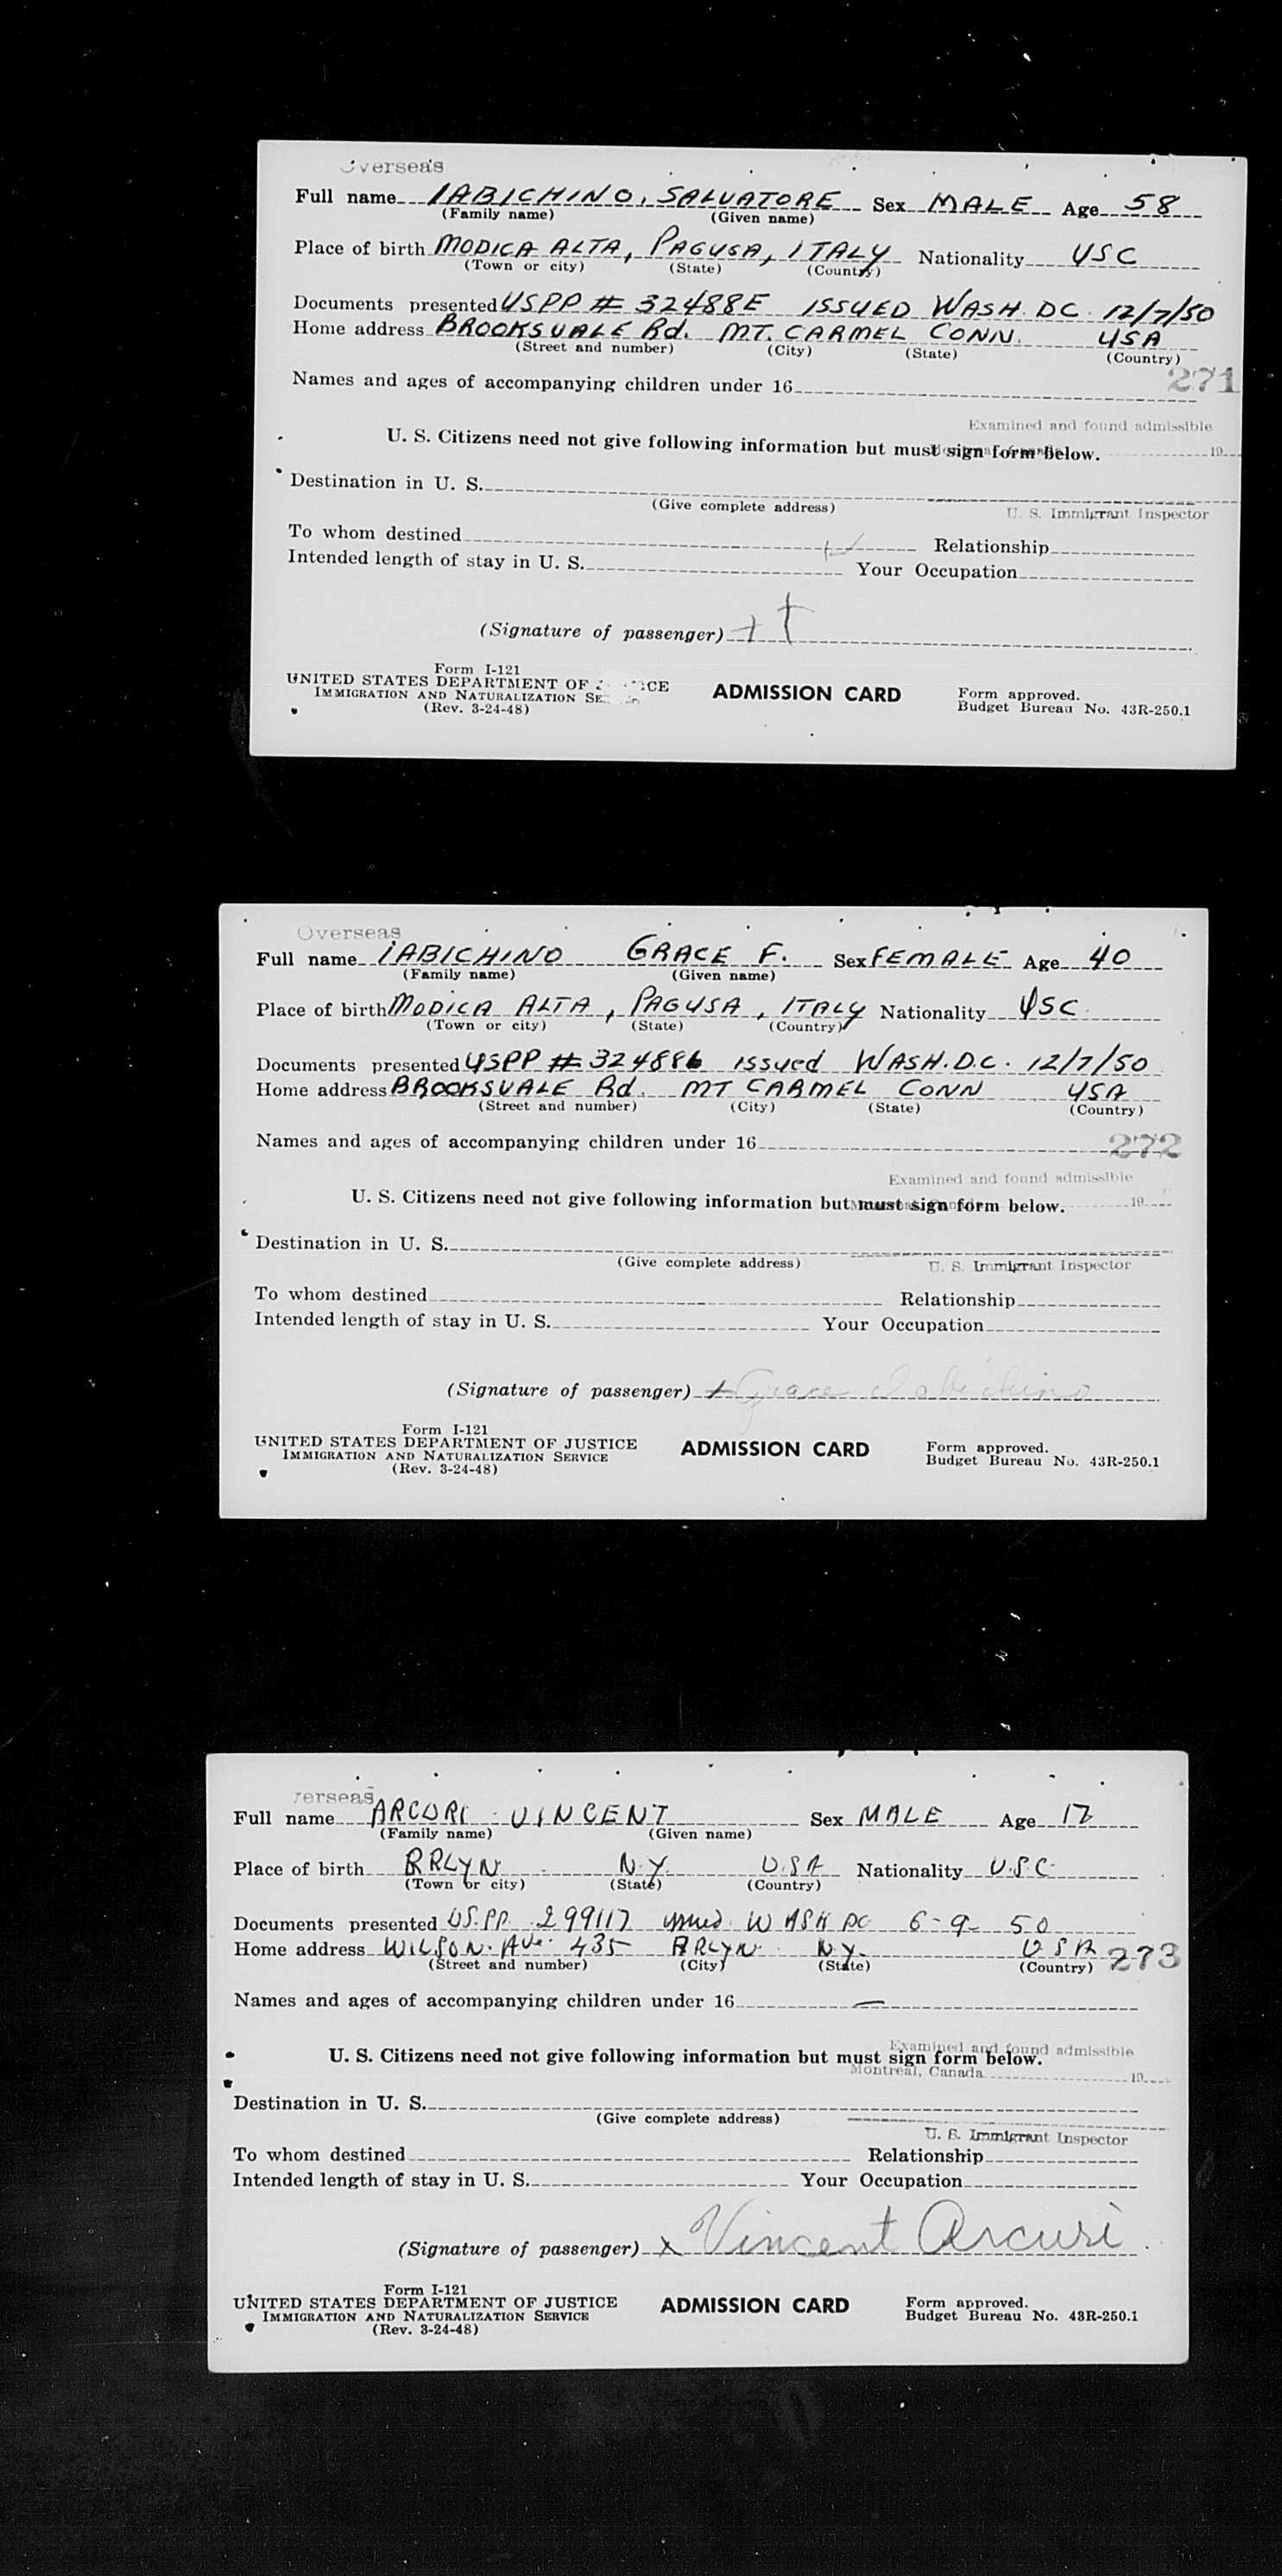 Overseas
Full name IABICHINO, SALVATORE Sex MALE Age 58
(Family name) (Given name)
Place of birth MODICA ALTA, PAGUSA, ITALY Nationality USC
(Town or city) (State) (Country)
Documents presented USPP # 32488E ISSUED WASH. DC. 12/7/50
Home address BROOKSVALE Rd. MT. CARMEL CONN. USA
(Street and number) (City) (State) (Country)
271
Names and ages of accompanying children under 16
Examined and found admissible
U. S. Citizens need not give following information but must sign form below.
19
Destination in U. S.
(Give complete address)
U. S. Immigrant Inspector
To whom destined Relationship
Intended length of stay in U. S. Your Occupation
(Signature of passenger) + t
Form I-121
UNITED STATES DEPARTMENT OF
IMMIGRATION AND NATURALIZATION
(Rev. 3-24-48)
ADMISSION CARD
Form approved.
Budget Bureau No. 43R-250.1
Overseas
Full name IABICHINO GRACE F. Sex FEMALE Age 40
(Family name) (Given name)
Place of birth MODICA ALTA, PAGUSA, ITALY Nationality USC
(Town or city) (State) (Country)
Documents presented USPP # 324886 issued WASH. D.C. 12/7/50
Home address BROOKSVALE Rd. MT CARMEL CONN USA
(Street and number) (City) (State) (Country)
Names and ages of accompanying children under 16 272
Examined and found admissible
U. S. Citizens need not give following information but must sign form below.
19
Destination in U. S.
(Give complete address)
U. S. Immigrant Inspector
To whom destined Relationship
Intended length of stay in U. S. Your Occupation
(Signature of passenger) + Grace Iabichino
Form I-121
UNITED STATES DEPARTMENT OF JUSTICE
IMMIGRATION AND NATURALIZATION SERVICE
(Rev. 3-24-48)
ADMISSION CARD
Form approved.
Budget Bureau No. 43R-250.1
Full name ARCURI VINCENT Sex MALE Age 17
(Family name) (Given name)
Place of birth BRLYN N.Y. USA Nationality U.S.C.
(Town or city) (State) (Country)
Documents presented US.PP. 299117 issued WASH DC 6-9-50
Home address WILSON. AVE. 435 BRLYN. N.Y. USA 273
(Street and number) (City) (State) (Country)
Names and ages of accompanying children under 16 —
Examined and found admissible
U. S. Citizens need not give following information but must sign form below.
Montreal, Canada 19
Destination in U. S.
(Give complete address)
U. S. Immigrant Inspector
To whom destined Relationship
Intended length of stay in U. S. Your Occupation
(Signature of passenger) x Vincent Arcuri
Form I-121
UNITED STATES DEPARTMENT OF JUSTICE
IMMIGRATION AND NATURALIZATION SERVICE
(Rev. 3-24-48)
ADMISSION CARD
Form approved.
Budget Bureau No. 43R-250.1